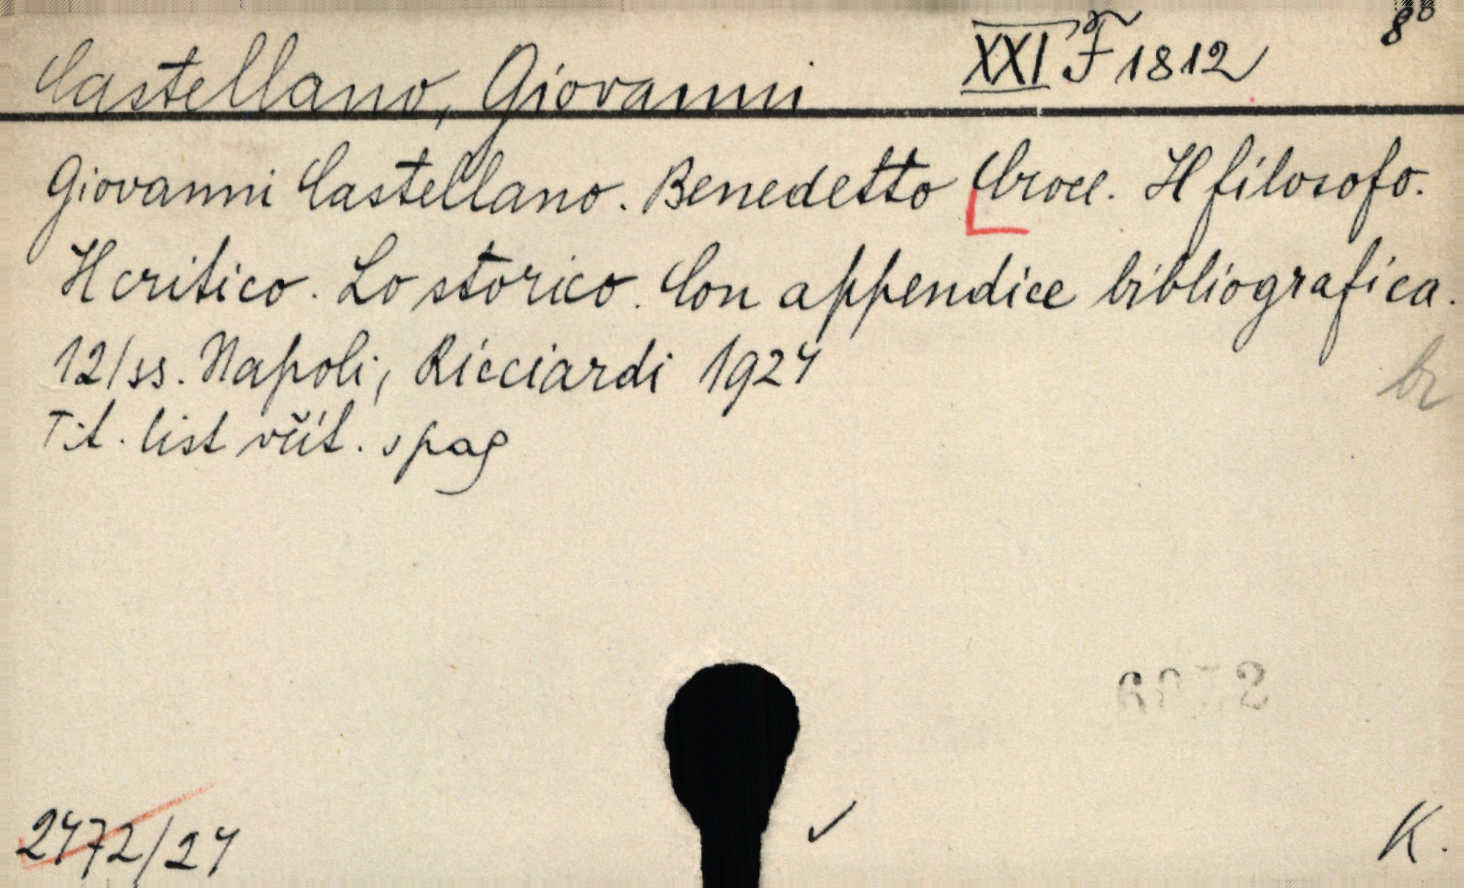 Castellano, Giovanni XXI F 1812 8°
Giovanni Castellano. Benedetto Croce. Il filosofo.
Il critico. Lo storico. Con appendice bibliografica.
12/ss. Napoli, Ricciardi 1924
br
Tit. list včít. s pag
2472/24 K.